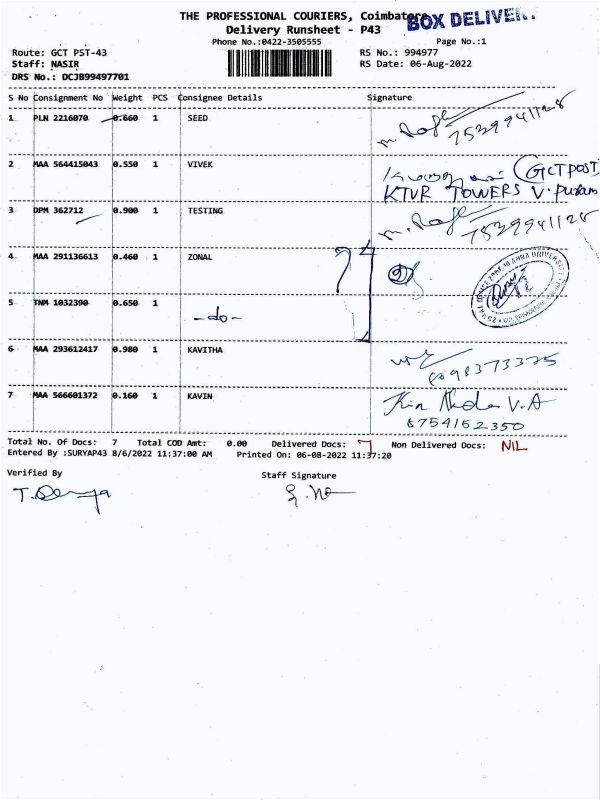 THE PROFESSIONAL COURIERS, Coimbatore
BOX DELIVERY
Delivery Runsheet - P43
Phone No.:0422-3505555
Page No.:1
Route: GCT PST-43
RS No.: 994977
Staff: NASIR
RS Date: 06-Aug-2022
DRS No.: DCJB99497701
S No Consignment No Weight PCS Consignee Details Signature
1 PLN 2216070 0.660 1 SEED
7539941128
2 MAA 564415043 0.550 1 VIVEK
GCT POST
KTVR TOWERS V.
3 DPM 362712 0.900 1 TESTING
7539941128
4 MAA 291136613 0.460 1 ZONAL
2
5 TNM 1032390 0.650 1
-do-
6 MAA 293612417 0.980 1 KAVITHA
8098373375
7 MAA 566601372 0.160 1 KAVIN
V.A
8754162350
Total No. Of Docs: 7 Total COD Amt: 0.00 Delivered Docs: 7 Non Delivered Docs: NIL
Entered By :SURYAP43 8/6/2022 11:37:00 AM Printed On: 06-08-2022 11:37:20
Verified By
Staff Signature